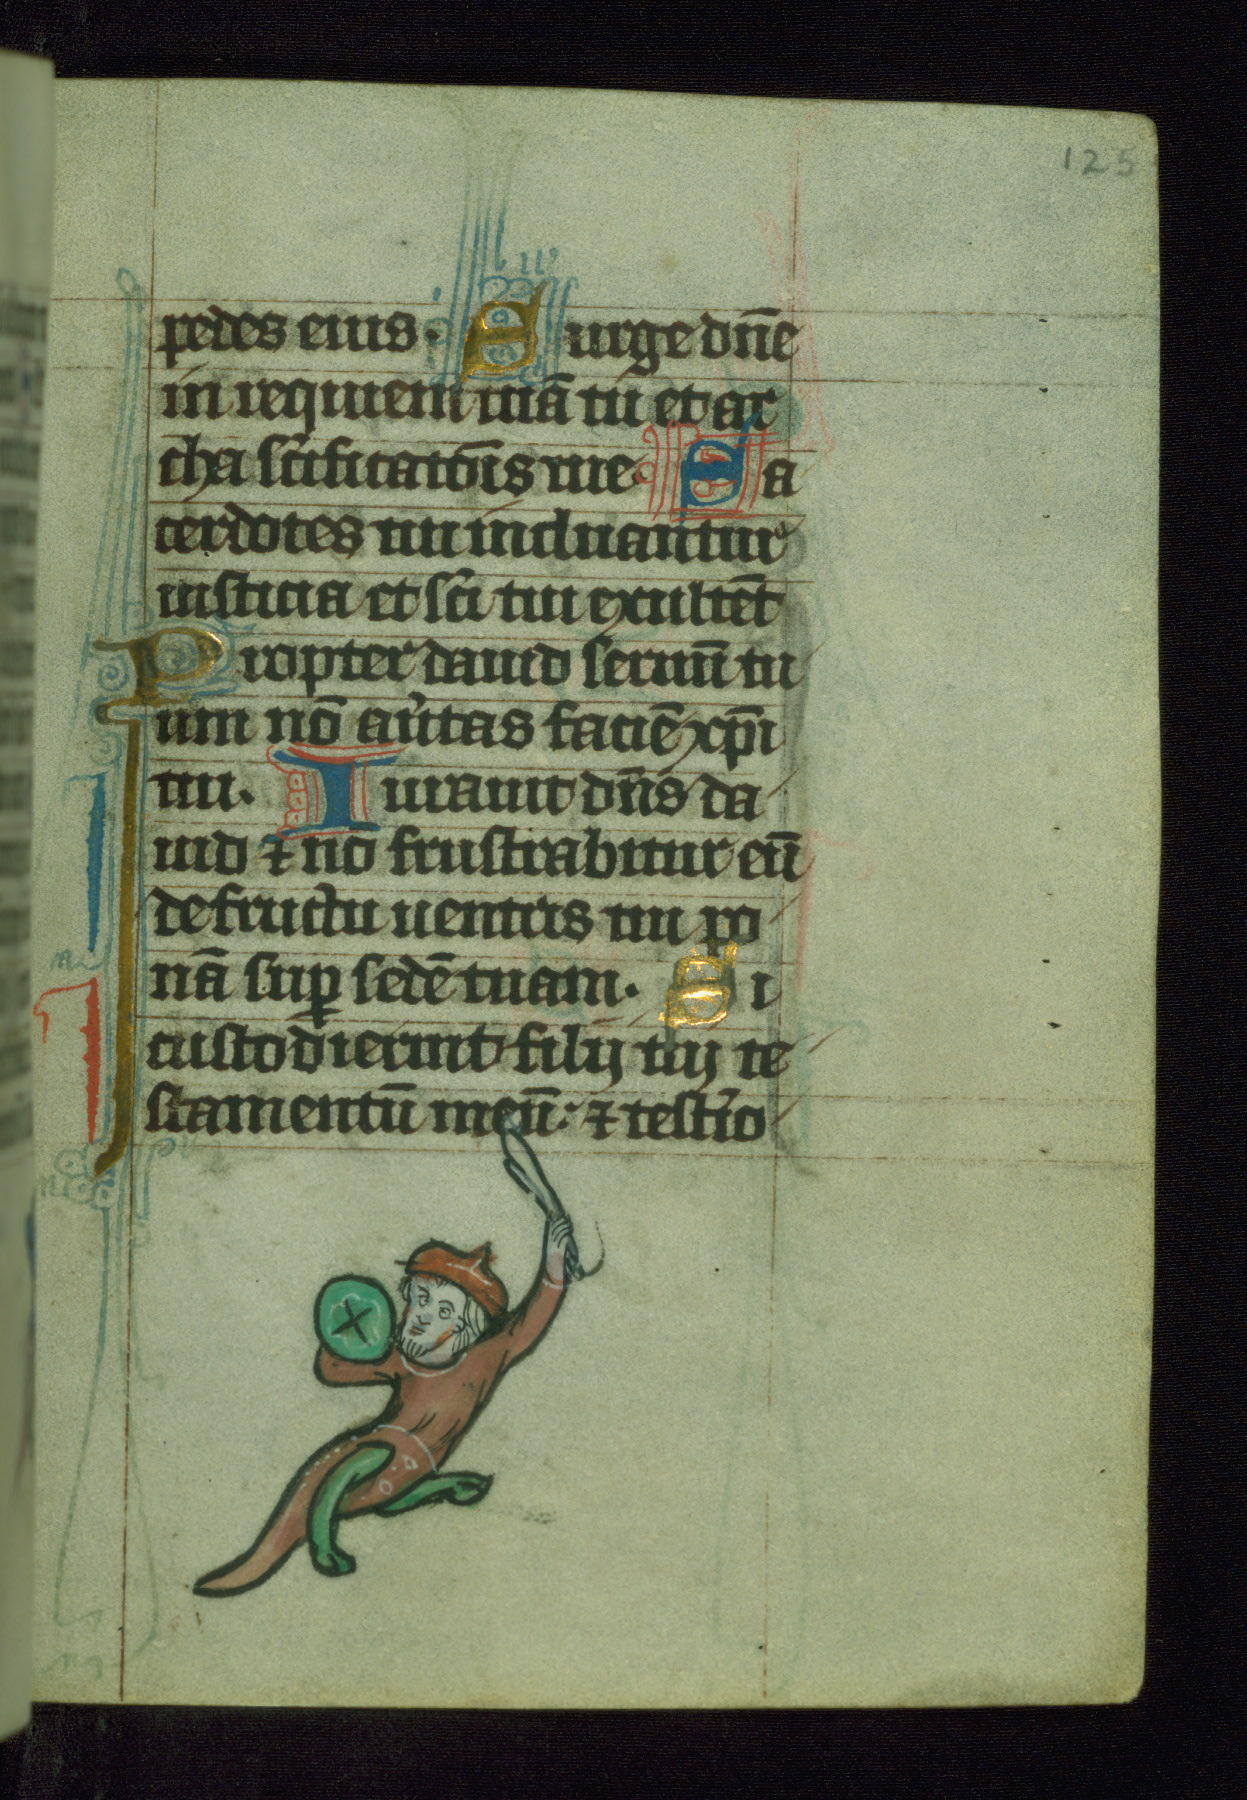 125
pedes eius. Surge dn̄e
in requiem tuā tu et ar
cha sc̄ificatōis tue. Sa
cerdotes tui induantur
iusticia et sc̄i tui exultēt
Propter dauid seruū tu
um nō au̓tas faciē xp̄i
tui. Iurauit dn̄s da
uid ⁊ nō frustrabitur eū
de fructu uentris tui po
nā sup̱ sedē tuam. Si
custodierint filij tui te
stamentū meū: ⁊ testi̓o